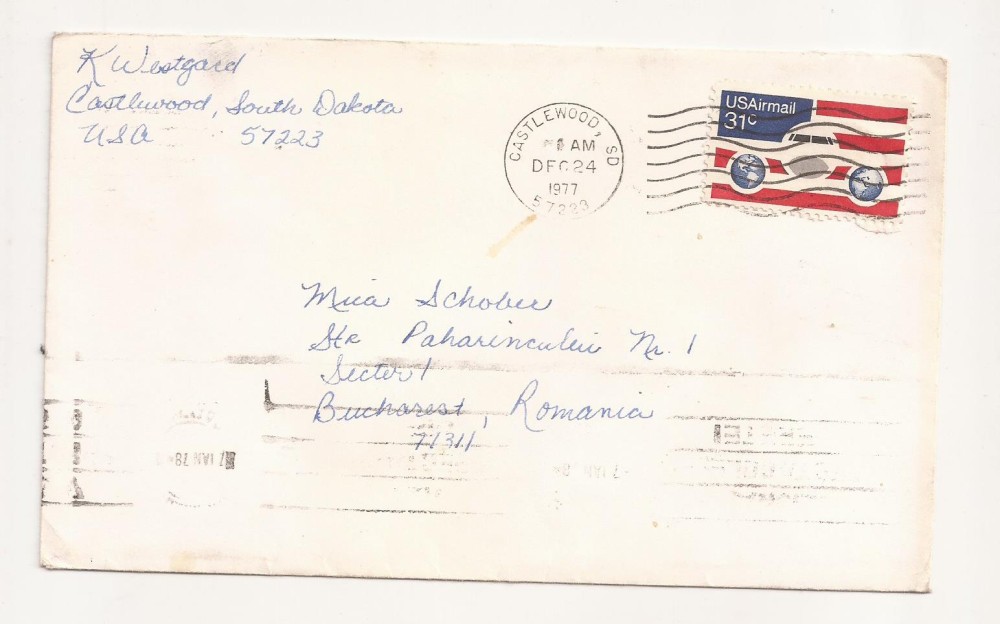 K Westgard
Castlewood, South Dakota
USA 57223
CASTLEWOOD, SD
AM
DEC 24
1977
57223
USAirmail
31c
Mica Schober
Str Paharincului Nr. 1
Sector 1
Bucharest, Romania
71311
7 IAN 78
7 IAN 78